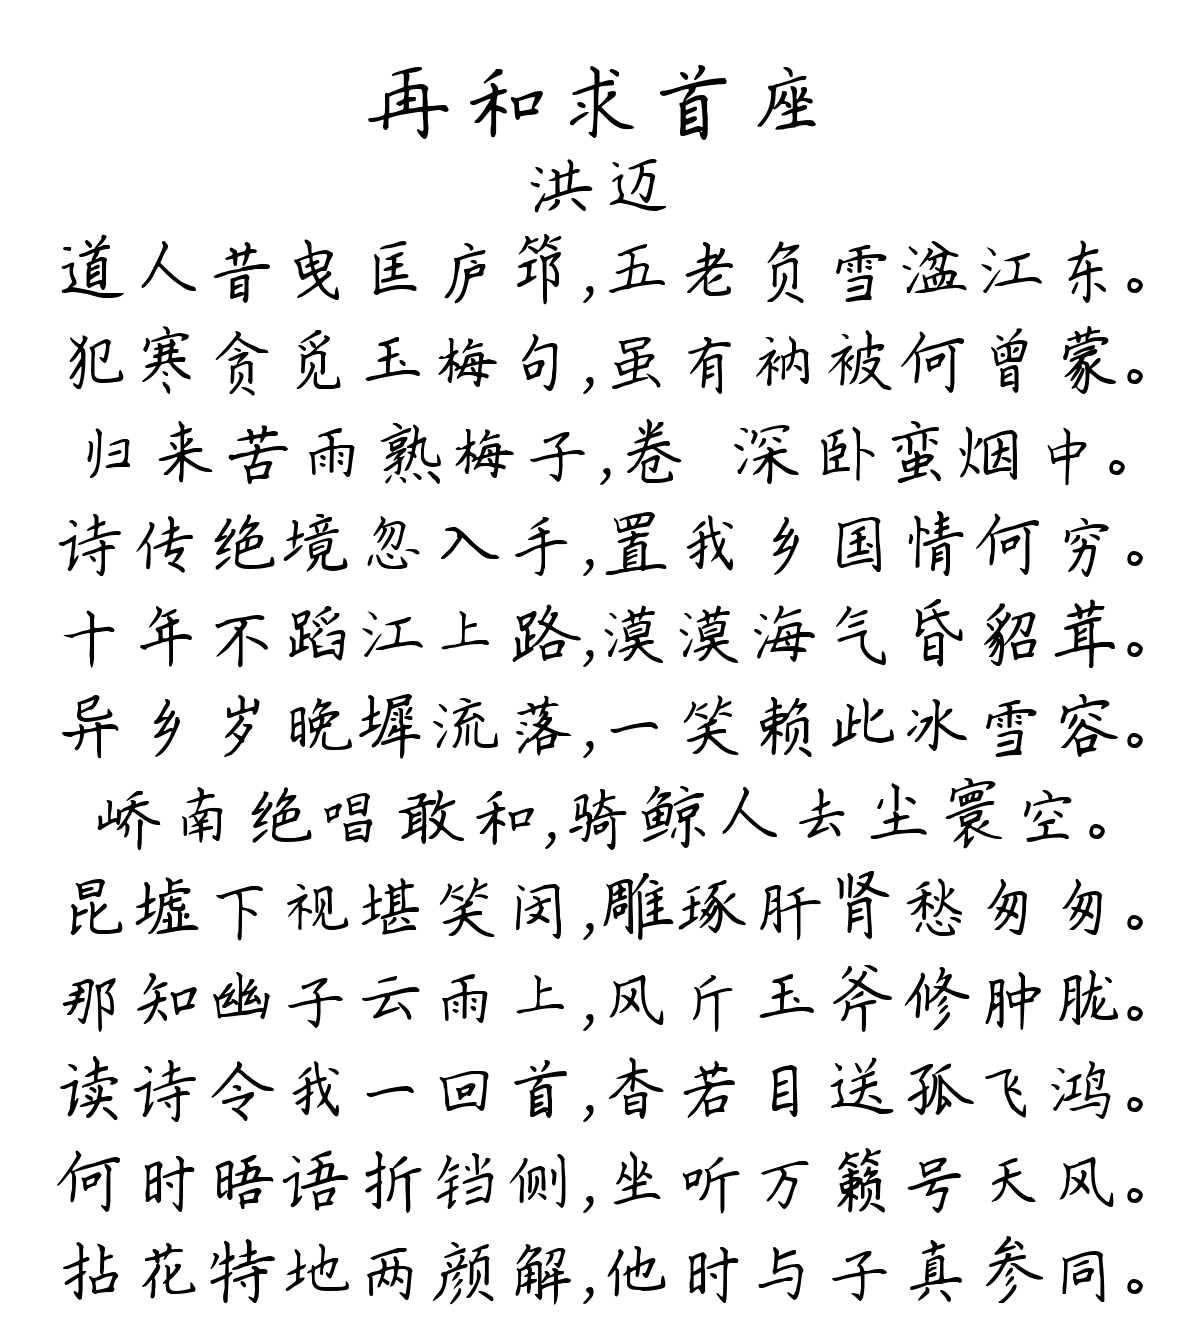 再和求首座
洪迈
道人昔曳匡庐筇,五老负雪湓江东。
犯寒贪觅玉梅句,虽有衲被何曾蒙。
归来苦雨熟梅子,卷 深卧蛮烟中。
诗传绝境忽入手,置我乡国情何穷。
十年不蹈江上路,漠漠海气昏貂茸。
异乡岁晚墀流落,一笑赖此冰雪容。
峤南绝唱敢和,骑鲸人去尘寰空。
昆墟下视堪笑闵,雕琢肝肾愁匆匆。
那知幽子云雨上,风斤玉斧修肿胧。
读诗令我一回首,杳若目送孤飞鸿。
何时晤语折铛侧,坐听万籁号天风。
拈花特地两颜解,他时与子真参同。